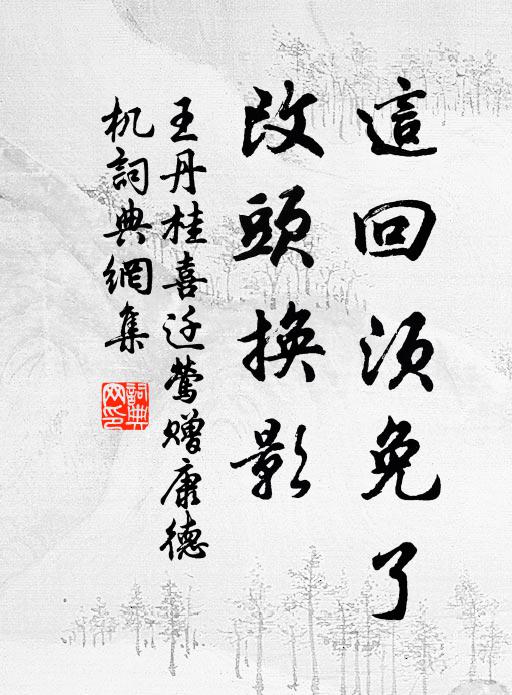 這回須免了
改頭換影
王丹桂喜迁鶯贈康德
机詞典網集
詞典
网印